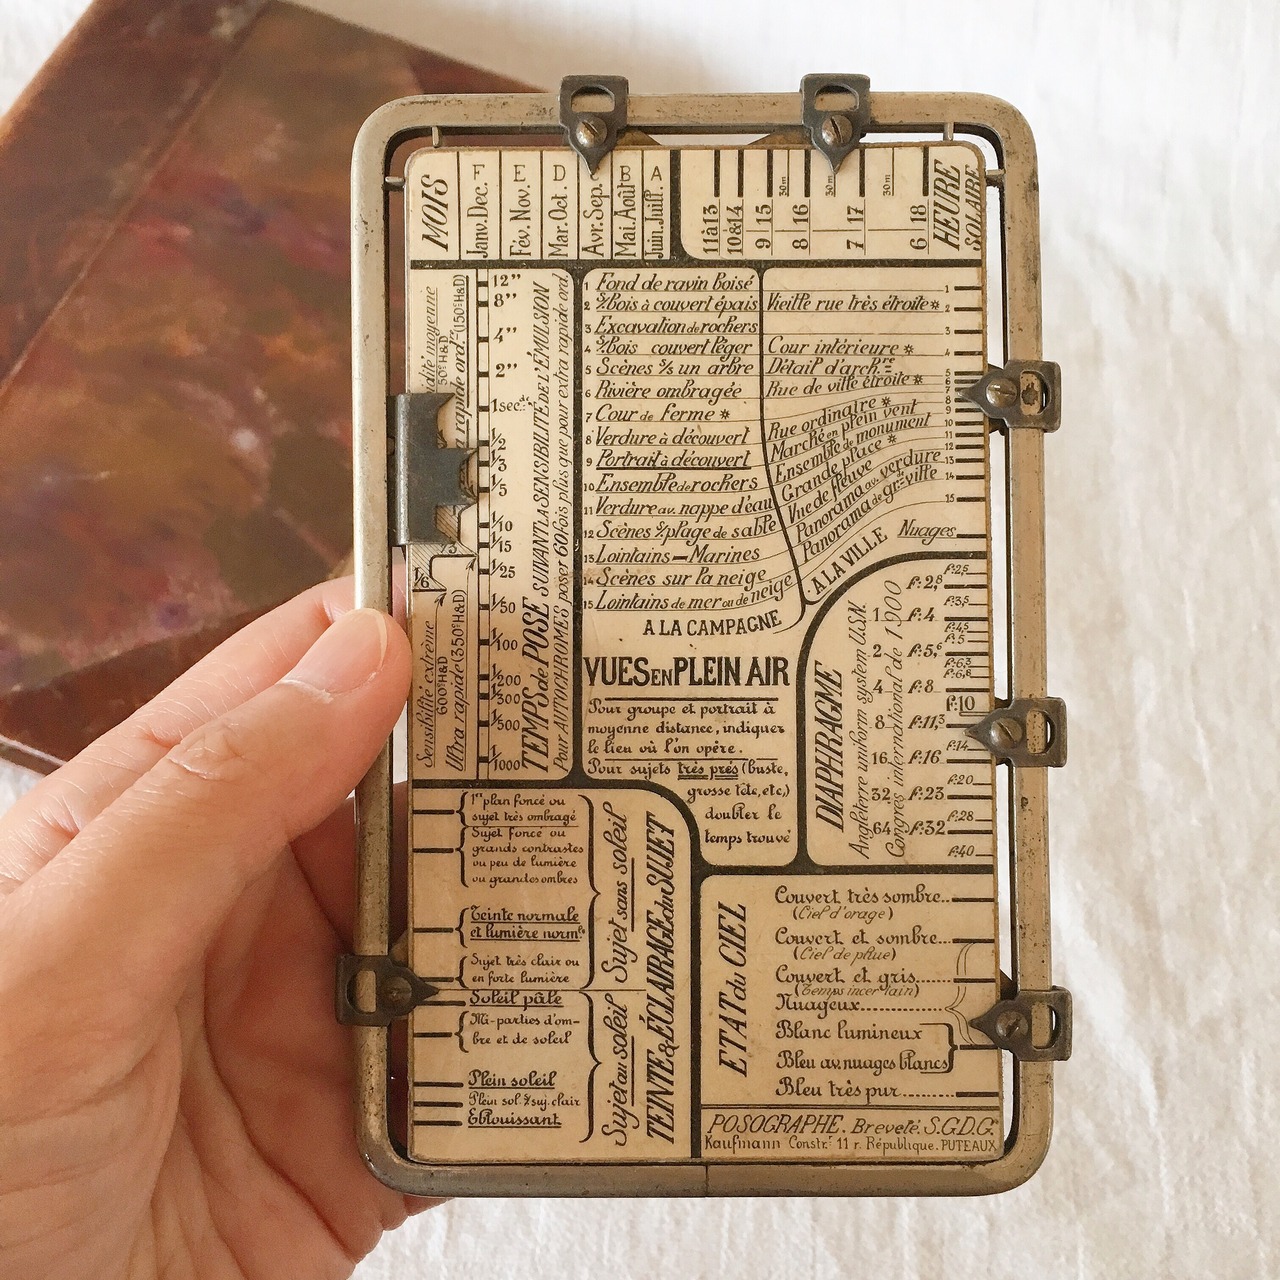 MOIS
F
Janv. Dec.
E
Fév. Nov.
D
Mar. Oct.
Avr. Sep.
B
Mai. Août
A
Juin. Juill.
11à13
10&14
9 15
30m
8 16
30m
7 17
30m
6 18
HEURE
SOLAIRE
50°H&D
(150°H&D)
12"
8"
4"
2"
1 sec.de
1/2
1/3
1/5
1/10
1/15
1/25
1/50
1/100
1/200
1/300
1/500
1/1000
1/6
Sensibilité extrême
600°H&D
Ultra rapide (350°H&D)
TEMPS de POSE SUIVANT LA SENSIBILITÉ DE L'ÉMULSION
Pour AUTOCHROMES poser 60 fois plus que pour extra rapide ord.
1 Fond de ravin Boisé
2 S/Bois à couvert épais
3 Excavation de rochers
4 S/Bois couvert léger
5 Scènes S/s un arbre
6 Rivière ombragée
7 Cour de Ferme *
8 Verdure à découvert
9 Portrait à découvert
10 Ensemble de rochers
11 Verdure av. nappe d'eau
12 Scènes s/plage de sable
13 Lointains — Marines
14 Scènes sur la neige
15 Lointains de mer ou de neige
A LA CAMPAGNE
1
Vieille rue très étroite * 2
3
Cour intérieure * 4
Détail d'arch.re 5
Rue de ville étroite * 6
7
Rue ordinaire * 8
Marché en plein vent 9
Ensemble de monument 10
Grande place * 11
Vue de fleuve 12
Panorama av. verdure 13
Panorama de gr.de ville 14
15
Nuages
A LA VILLE
VUES EN PLEIN AIR
Pour groupe et portrait à
moyenne distance, indiquer
le lieu où l'on opère.
Pour sujets très près (buste,
grosse tête, etc.)
doubler le
temps trouvé
DIAPHRAGME
Angleterre uniform system U.S.N.
Congrès international de 1900
f:2,5
f:2,8
f:3,5
1 f:4
f:4,5
f:5
2 f:5,6
f:6,3
f:6,8
4 f:8
f:10
8 f:11,3
f:14
16 f:16
f:20
32 f:23
f:28
64 f:32
f:40
1er plan foncé ou
sujet très ombragé
Sujet foncé ou
grands contrastes
ou peu de lumière
ou grandes ombres
Teinte normale
et lumière norm.le
Sujet très clair ou
en forte lumière
Soleil pâle
Mi-parties d'om-
bre et de soleil
Plein soleil
Plein sol. & suj. clair
Eblouissant
Sujet sans soleil
Sujet au soleil
TEINTE & ÉCLAIRAGE du SUJET
ETAT du CIEL
Couvert très sombre..
(Ciel d'orage)
Couvert et sombre...
(Ciel de pluie)
Couvert et gris.......
(Temps incertain)
Nuageux..............
Blanc lumineux
Bleu av. nuages blancs
Bleu très pur.........
POSOGRAPHE. Breveté. S.G.D.G.
Kaufmann Constr. 11 r. République. PUTEAUX